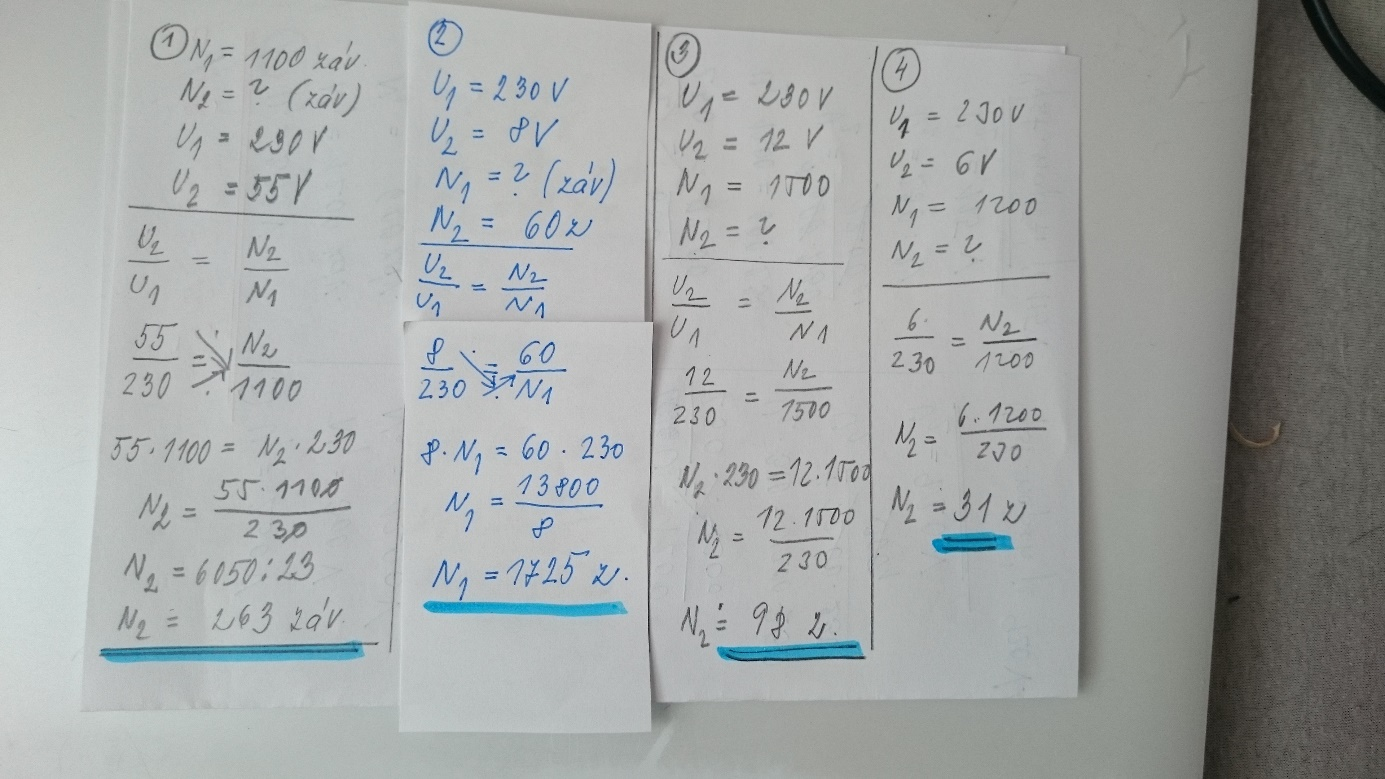 ① N₁ = 1100 záv.
N₂ = ? (záv)
U₁ = 230 V
U₂ = 55 V
U₂/U₁ = N₂/N₁
55/230 = N₂/1100
55 · 1100 = N₂ · 230
N₂ = 55 · 1100/230
N₂ = 6050 : 23
N₂ ≐ 263 záv.
②
U₁ = 230 V
U₂ = 8 V
N₁ = ? (záv)
N₂ = 60 z
U₂/U₁ = N₂/N₁
8/230 = 60/N₁
8 · N₁ = 60 · 230
N₁ = 13800/8
N₁ = 1725 z.
③
U₁ = 230 V
U₂ = 12 V
N₁ = 1500
N₂ = ?
U₂/U₁ = N₂/N1
12/230 = N₂/1500
N₂ · 230 = 12 . 1500
N₂ = 12 . 1500/230
N₂ ≐ 98 z.
④
U₁ = 230 V
U₂ = 6 V
N₁ = 1200
N₂ = ?
6/230 = N₂/1200
N₂ = 6 · 1200/230
N₂ ≐ 31 z